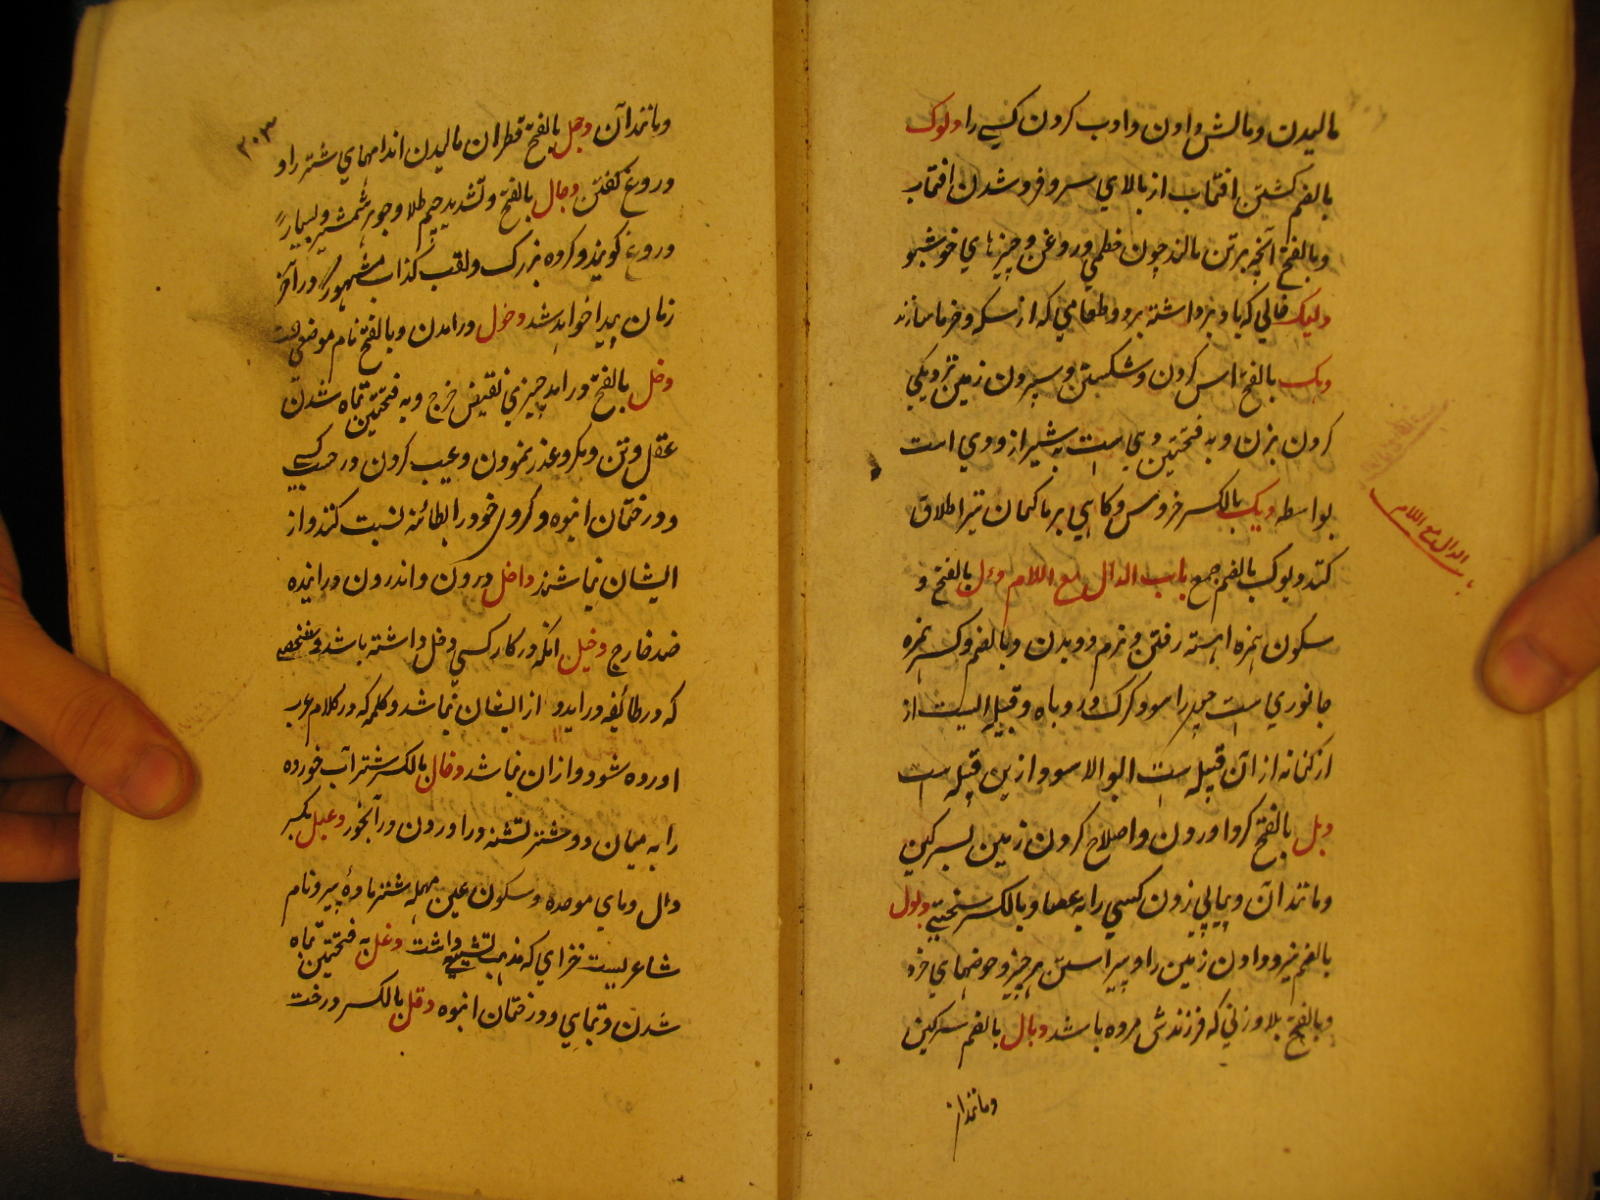 مالیدن و مالش دادن و ادب کردن کسی را دلوک
بالضم کشتن افتاب از بالای سر و فروشدن افتاب
و بالفتح آنچه بر تن مالند چون خطمی و روغن و چیزهای خوشبو
دلیک خاکی که باد برداشته برد و طعامی که از مسکه و خرما سازند
دیک بالفتح اس کردن و شکستن و سپردن زمین نزدیکی
کردن بزن و به فتحتین دهی ست به شیراز و دی است
بواسطه دیک بالکسر خروس و کاهی بر ماکیان نیز اطلاق
کنند دیوک بالضم جمع باب الدال مع اللام دئل بالفتح و
سکون همزه اهسته رفتن و نرم دویدن و بالضم و کسر همزه
جانوری ست چون راسو و کرک و روباه و قبیله ایست از
از کنانه از آن قبیله ست ابوالاسود و ازین قبیله ست
دبل بالفتح کرد اوردن و اصلاح کردن زمین بسرکین
و مانند آن و پیاپی زدن کسی را به عصا و بالکسر سختی دبول
بالضم نیرو دادن زمین را و پیراستن هر چیز و حوضهای خرد
و بالفتح بلا و زنی که فرزندش مرده باشد دبال بالضم سرکین
و مانند ان
باب الدال مع اللام
۳۰۳
و مانند آن دجل بالفتح قطران مالیدن اندامهای شتر را و
دروغ کفتن دجال بالفتح و تشدید جیم طلا و جوهر شمشیر و بسیار
دروغ کوینده و کروه بزرک و لقب کذاب مشهور که در آخر
زمان پیدا خواهد شد دخول درامدن و بالفتح نام موضعی ست
دخل بالفتح درامد چیزی نقیض خرج و به فتحتین تباه شدن
عقل و تن و مکر و غدر نمودن و عیب کردن در حسب کسی
و درختان انبوه و کروهی خود را بطائفه نسبت کنند و از
ایشان نباشند داخل درون و اندرون و دراینده
ضد خارج دخیل انکه در کار کسی دخل داشته باشد و شخصی
که در طائفه دراید و از ایشان نباشد و کلمه که در کلام عرب
اورده شود و از ان نباشد دخال بالکسر شتر آب خورده
را به میان دو شتر تشنه دراوردن در آبخور دعبل بکسر
دال و بای موحده و سکون عین مهمله شتر ماده پیر و نام
شاعریست خزاعی که مذهب تشیع داشت دغل به فتحتین تباه
شدن و تباهی و درختان انبوه دقل بالکسر درخت